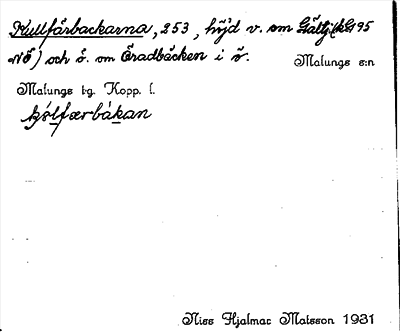 Kullfårbackarna, 253, höjd v. om Gältj (kG 95
NÖ) och ö. om Eradbäcken i ö.
Malungs s:n
Malungs tg. Kopp. l.
Niss Hjalmar Matsson 1931